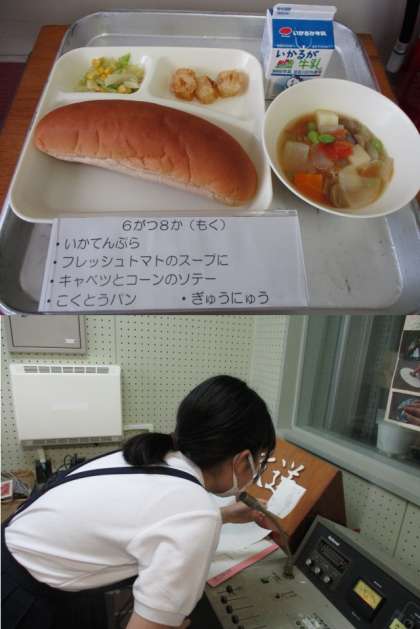 いかるが牛乳
いかるが
牛乳
6がつ8か（もく）
・いかてんぷら
・フレッシュトマトのスープに
・キャベツとコーンのソテー
・こくとうパン ・ぎゅうにゅう